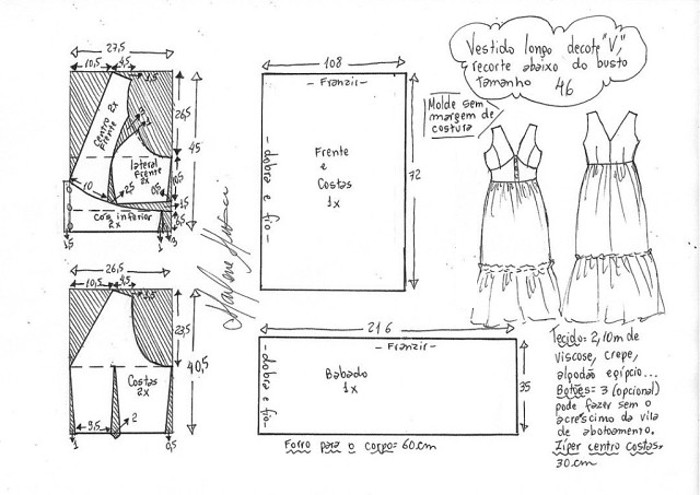 27,5
10,5
4,5
1,5
Centro frente 2x
3
26,5
45
lateral
frente
2x
10
2,5
0,5
10,5
1,5
6,5
Cos inferior
2x
1,5
1
3
26,5
10,5
4,5
1,5
23,5
40,5
Costas
2x
9,5
2
1
0,5
Marlene Mukai
108
- Franzir -
- dobra e fio -
Frente
e
Costas
1x
72
216
- Franzir -
- dobra e fio -
Babado
1x
35
Forro para o corpo= 60cm
Vestido longo decote "V",
recorte abaixo do busto
Tamanho 46
Molde sem
margem de
costura
Tecido= 2,10m de
viscose, crepe,
algodão egípcio...
Botões= 3 (opcional)
pode fazer sem o
acrescimo da vila
de abotoamento.
Zíper centro costas.
30cm